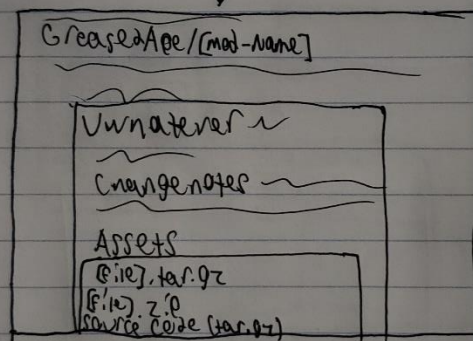 Greas2Ape/[mod-Name]
Vwhatever
Changenotes
Assets
[file].tar.gz
[file].zip
Source Code (tar.gz)